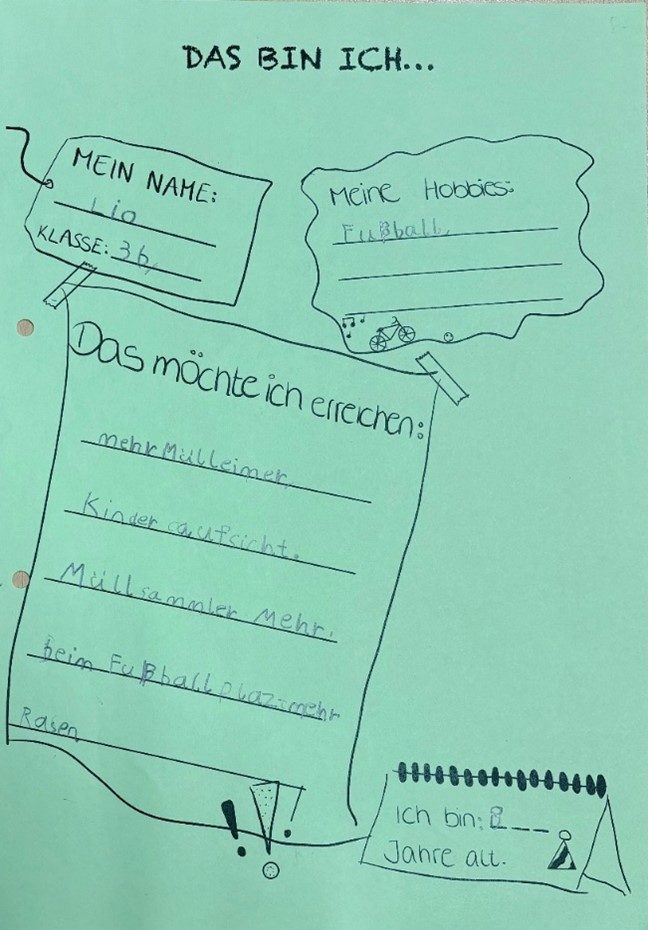 DAS BIN ICH...
MEIN NAME:
Lia
KLASSE: 3b,
Meine Hobbies:
Fußball,
Das möchte ich erreichen:
mehr Mülleimer,
Kinder aufsicht.
Müllsammler mehr.
beim Fußballplaz mehr
Rasen
Ich bin: 8
Jahre alt.